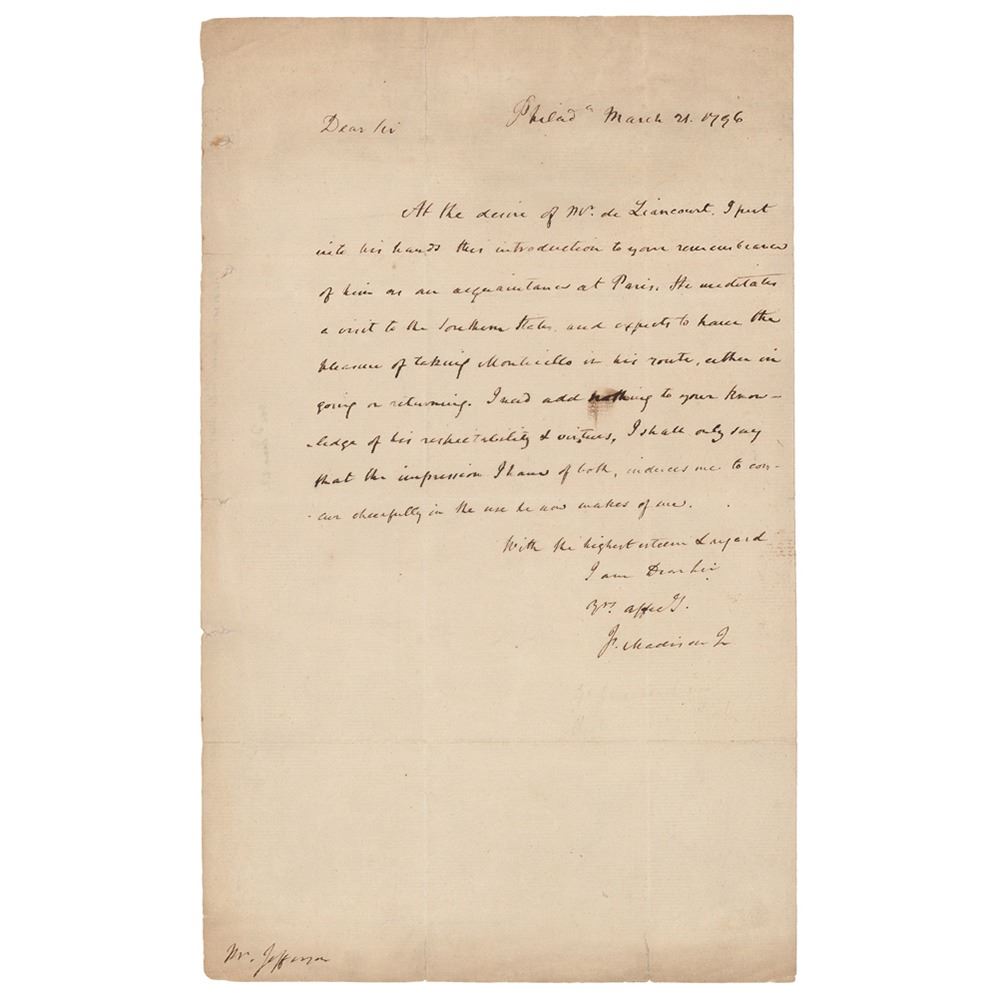 Philad^a March 21. 1796
Dear Sir
At the desire of Mr. de Liancourt, I put
into his hands this introduction to your remembrance
of him as an acquaintance at Paris. He meditates
a visit to the Southern States, and expects to have the
pleasure of taking Monticello in his route, either in
going or returning. I need add nothing to your know-
-ledge of his respectability & virtues, I shall only say
that the impression I have of both, induces me to con-
-cur cheerfully in the use he now makes of me.
With the highest esteem & regard
I am Dear Sir
Yrs. affecty.
Js. Madison Jr
Mr. Jefferson